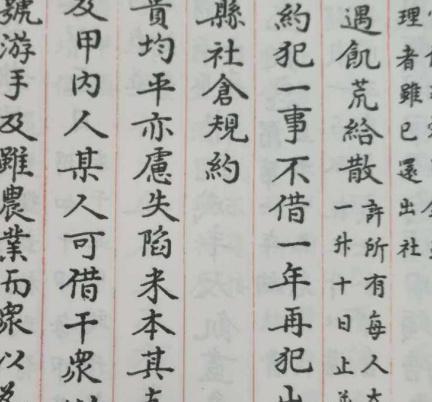 理者雖已還出社
遇飢荒給散許所有每人
一升十日止
約犯一事不借一年再犯
縣社倉規約
均平亦慮失陷米本其
及甲內人某人可借干衆
號游手及雖農業而衆以